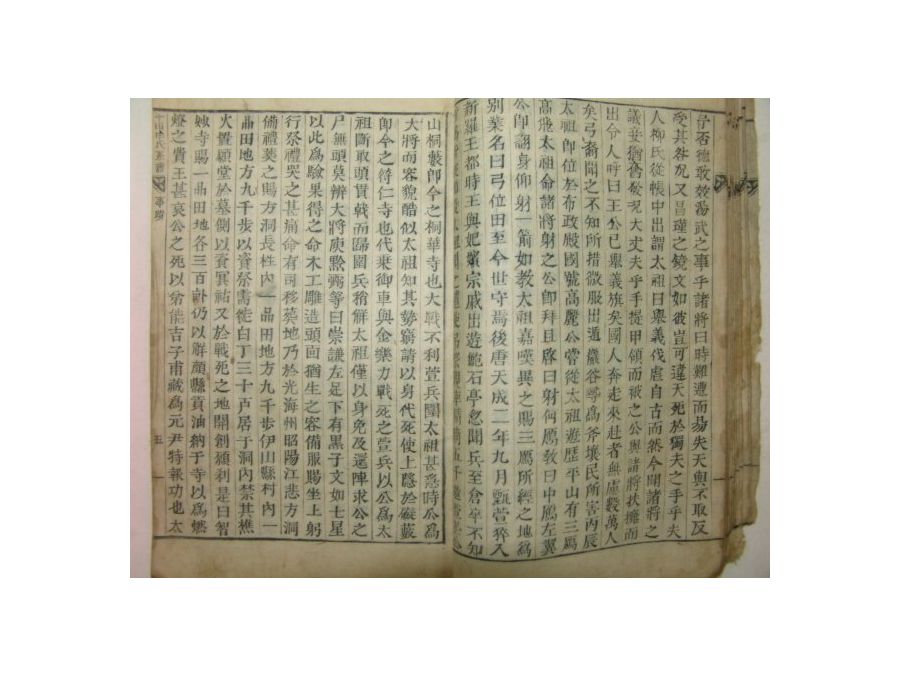 予否德敢效湯武之事乎諸將曰時難遭而易失天與不取反
受其咎况又昌瑾之鏡文如彼豈可違天死於獨夫之手乎夫
人柳氏從帳中出謂太祖曰擧義伐虐自古而然今聞諸將之
議妾猶奮發况大丈夫乎手提甲領而被之公與諸將扶擁而
出令人呼曰王公已擧義旗矣國人奔走來赴者無慮數萬人
矣弓裔聞之不知所措微服出遁巖谷尋爲斧壤民所害丙辰
太祖卽位於布政殿國號高麗公嘗從太祖遊歷平山有三鴈
高飛太祖命諸將射之公卽拜且啓曰射何鴈敎曰中鴈左翼
公卽詡身仰射一箭如敎太祖嘉嘆異之賜三鴈所經之地爲
別業名曰弓位田至今世守焉後唐天成二年九月甄萱猝入
新羅王都時王與妃嬪宗戚出遊鮑石亭忽聞兵至倉卒不知
山桐藪卽今之桐華寺也大戰不利萱兵圍太祖甚急時公爲
大將而容貌酷似太祖知其勢窮請以身代死使上隱於礙藪
卽今之符仁寺也代乘御車與金樂力戰死之萱兵以公爲太
祖斷取頭貫戟而歸圍兵稍解太祖僅以身免及還陣求公之
尸無頭莫辨大將庾黔弼等曰崇謙左足下有黑子文如七星
以此爲驗果得之命木工雕造頭面猶生之容備服賜坐上躬
行祭禮哭之甚痛命有司移葬地乃於光海州昭陽江悲方洞
備禮葬之賜方洞長栍內一品田地方九千步伊山縣村內一
品田地方九千步以資祭需徙白丁三十戶居于洞內禁其樵
火置願堂於墓側以資冥祐又於戰死之地開創願刹是曰智
妙寺賜一品田地各三百卜仍以解顏縣貢油納于寺以爲燃
燈之費王甚哀公之死以弟能吉子甫藏爲元尹特報功也太
平山申氏系譜 事蹟 五